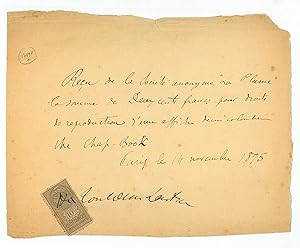 Reçu de la Société anonyme "La Plume"
la somme de Deux cent francs pour droits
de reproduction d'une affiche demi colombier
The Chap-Book
Paris le 14 novembre 1895